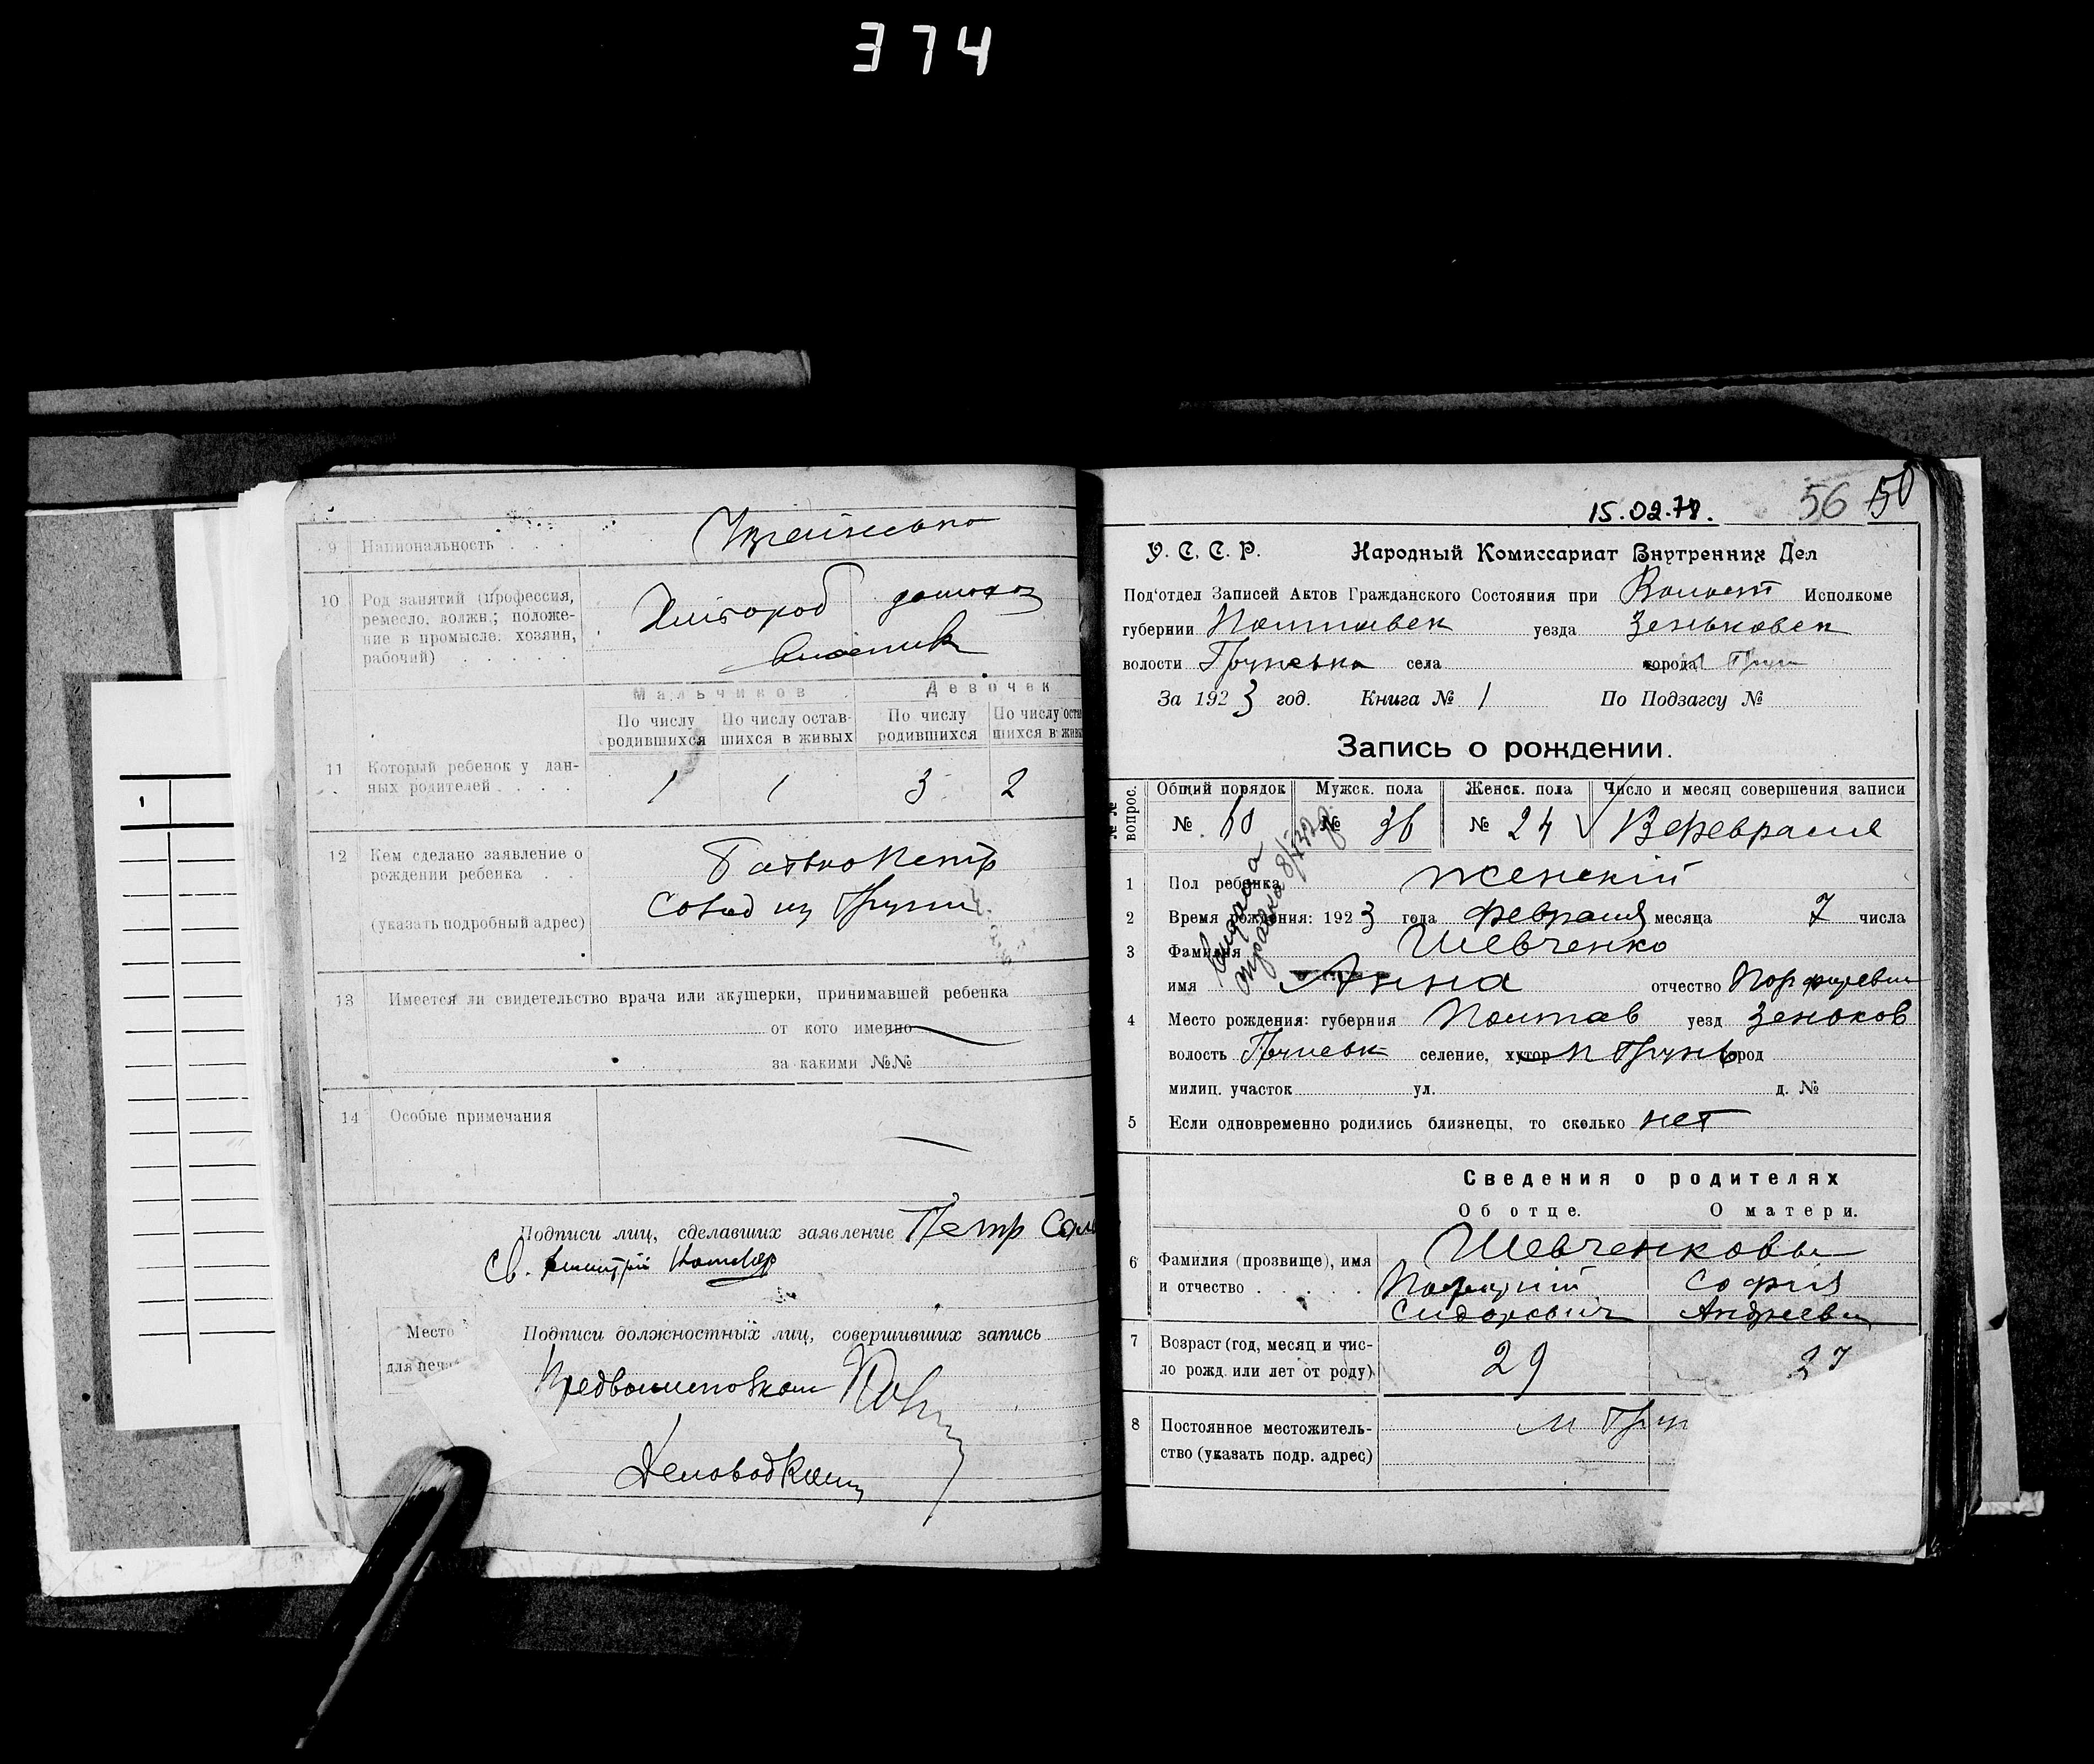 374
9 Национальность
10 Род занятий (профессия,
ремесло, должн.; положе-
ние в промысле: хозяин,
рабочий)
Хлибороб
Мальчиков Девочек
По числу родившихся По числу остав-шихся в живых По числу родившихся По числу
11 Который ребенок у дан-
ных родителей 1 1 3 2
12 Кем сделано заявление о
рождении ребенка
Батько Петр
(указать подробный адрес)
из Груни
13 Имеется ли свидетельство врача или акушерки, принимавшей ребенка
от кого именно
за какими №№
14 Особые примечания
Подписи лиц, сделавших заявление Петр
Св.
Место
для
Подписи должностных лиц, совершивших запись
15.02.78. 56 50
У. С. С. Р. Народный Комиссариат Внутренних Дел
Под'отдел Записей Актов Гражданского Состояния при Волост Исполкоме
губернии Полтавск уезда Зеньковск
волости Груньска села города Грун
За 1923 год. Книга № 1 По Подзагсу №
Запись о рождении.
№№ вопрос. Общий порядок Мужск. пола Женск. пола Число и месяц совершения записи
№ 60 № 36 № 24 февраля
1 Пол ребенка женский
2 Время рождения: 1923 года февраля месяца 7 числа
3 Фамилия Шевченко
имя Анна отчество Порфирьевн
4 Место рождения: губерния Полтав уезд Зеньков
волость Груневк селение, хутор м Грунь город
милиц. участок ул. д. №
5 Если одновременно родились близнецы, то сколько нет
Сведения о родителях
Об отце. О матери.
6 Фамилия (прозвище), имя
и отчество
Шевченковы
София
Сидорович Андреевн
7 Возраст (год, месяц и чис-
ло рожд. или лет от роду) 29 27
8 Постоянное местожитель-
ство (указать подр. адрес)
м Грун